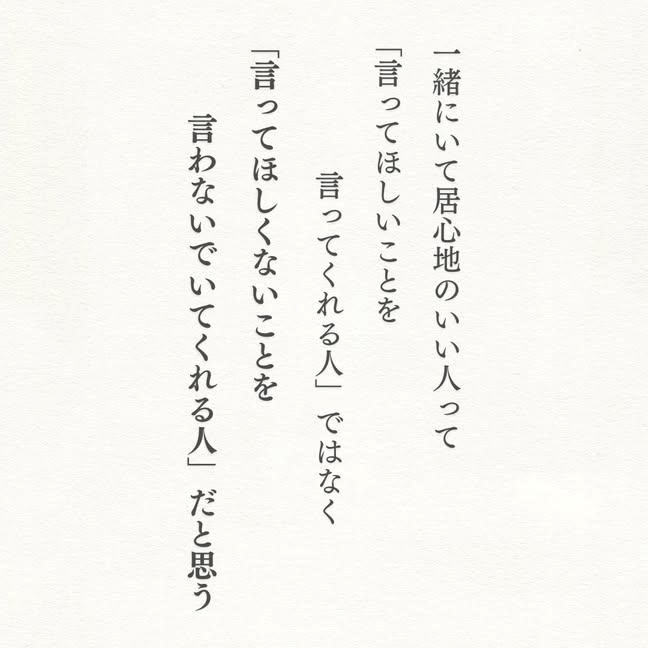 一緒にいて居心地のいい人って
「言ってほしいことを
言ってくれる人」ではなく
「言ってほしくないことを
言わないでいてくれる人」だと思う